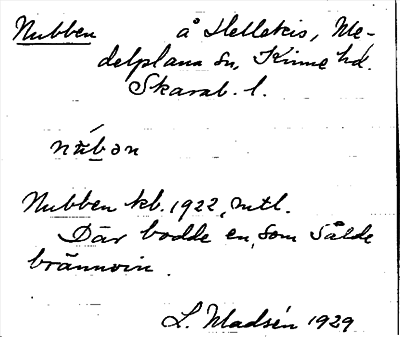 Nubben å Hellekis, Me-
delplana sn, Kinne hd.
Skarab. l.
núbən
Nubben kb. 1922, mtl.
Där bodde en, som sålde
brännvin.
L. Madsén 1929